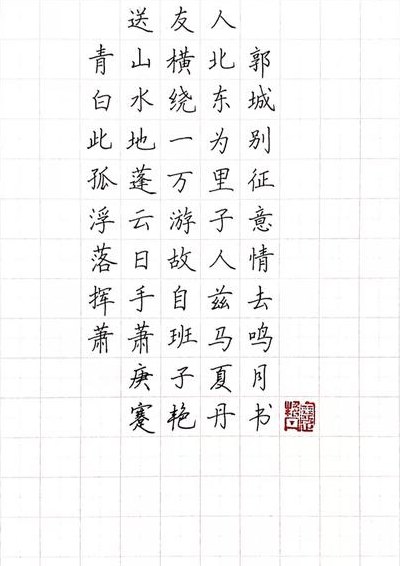 送友人
青山横北郭
白水绕东城
此地一为别
孤蓬万里征
浮云游子意
落日故人情
挥手自兹去
萧萧班马鸣
庚子夏月
蹇艳丹书